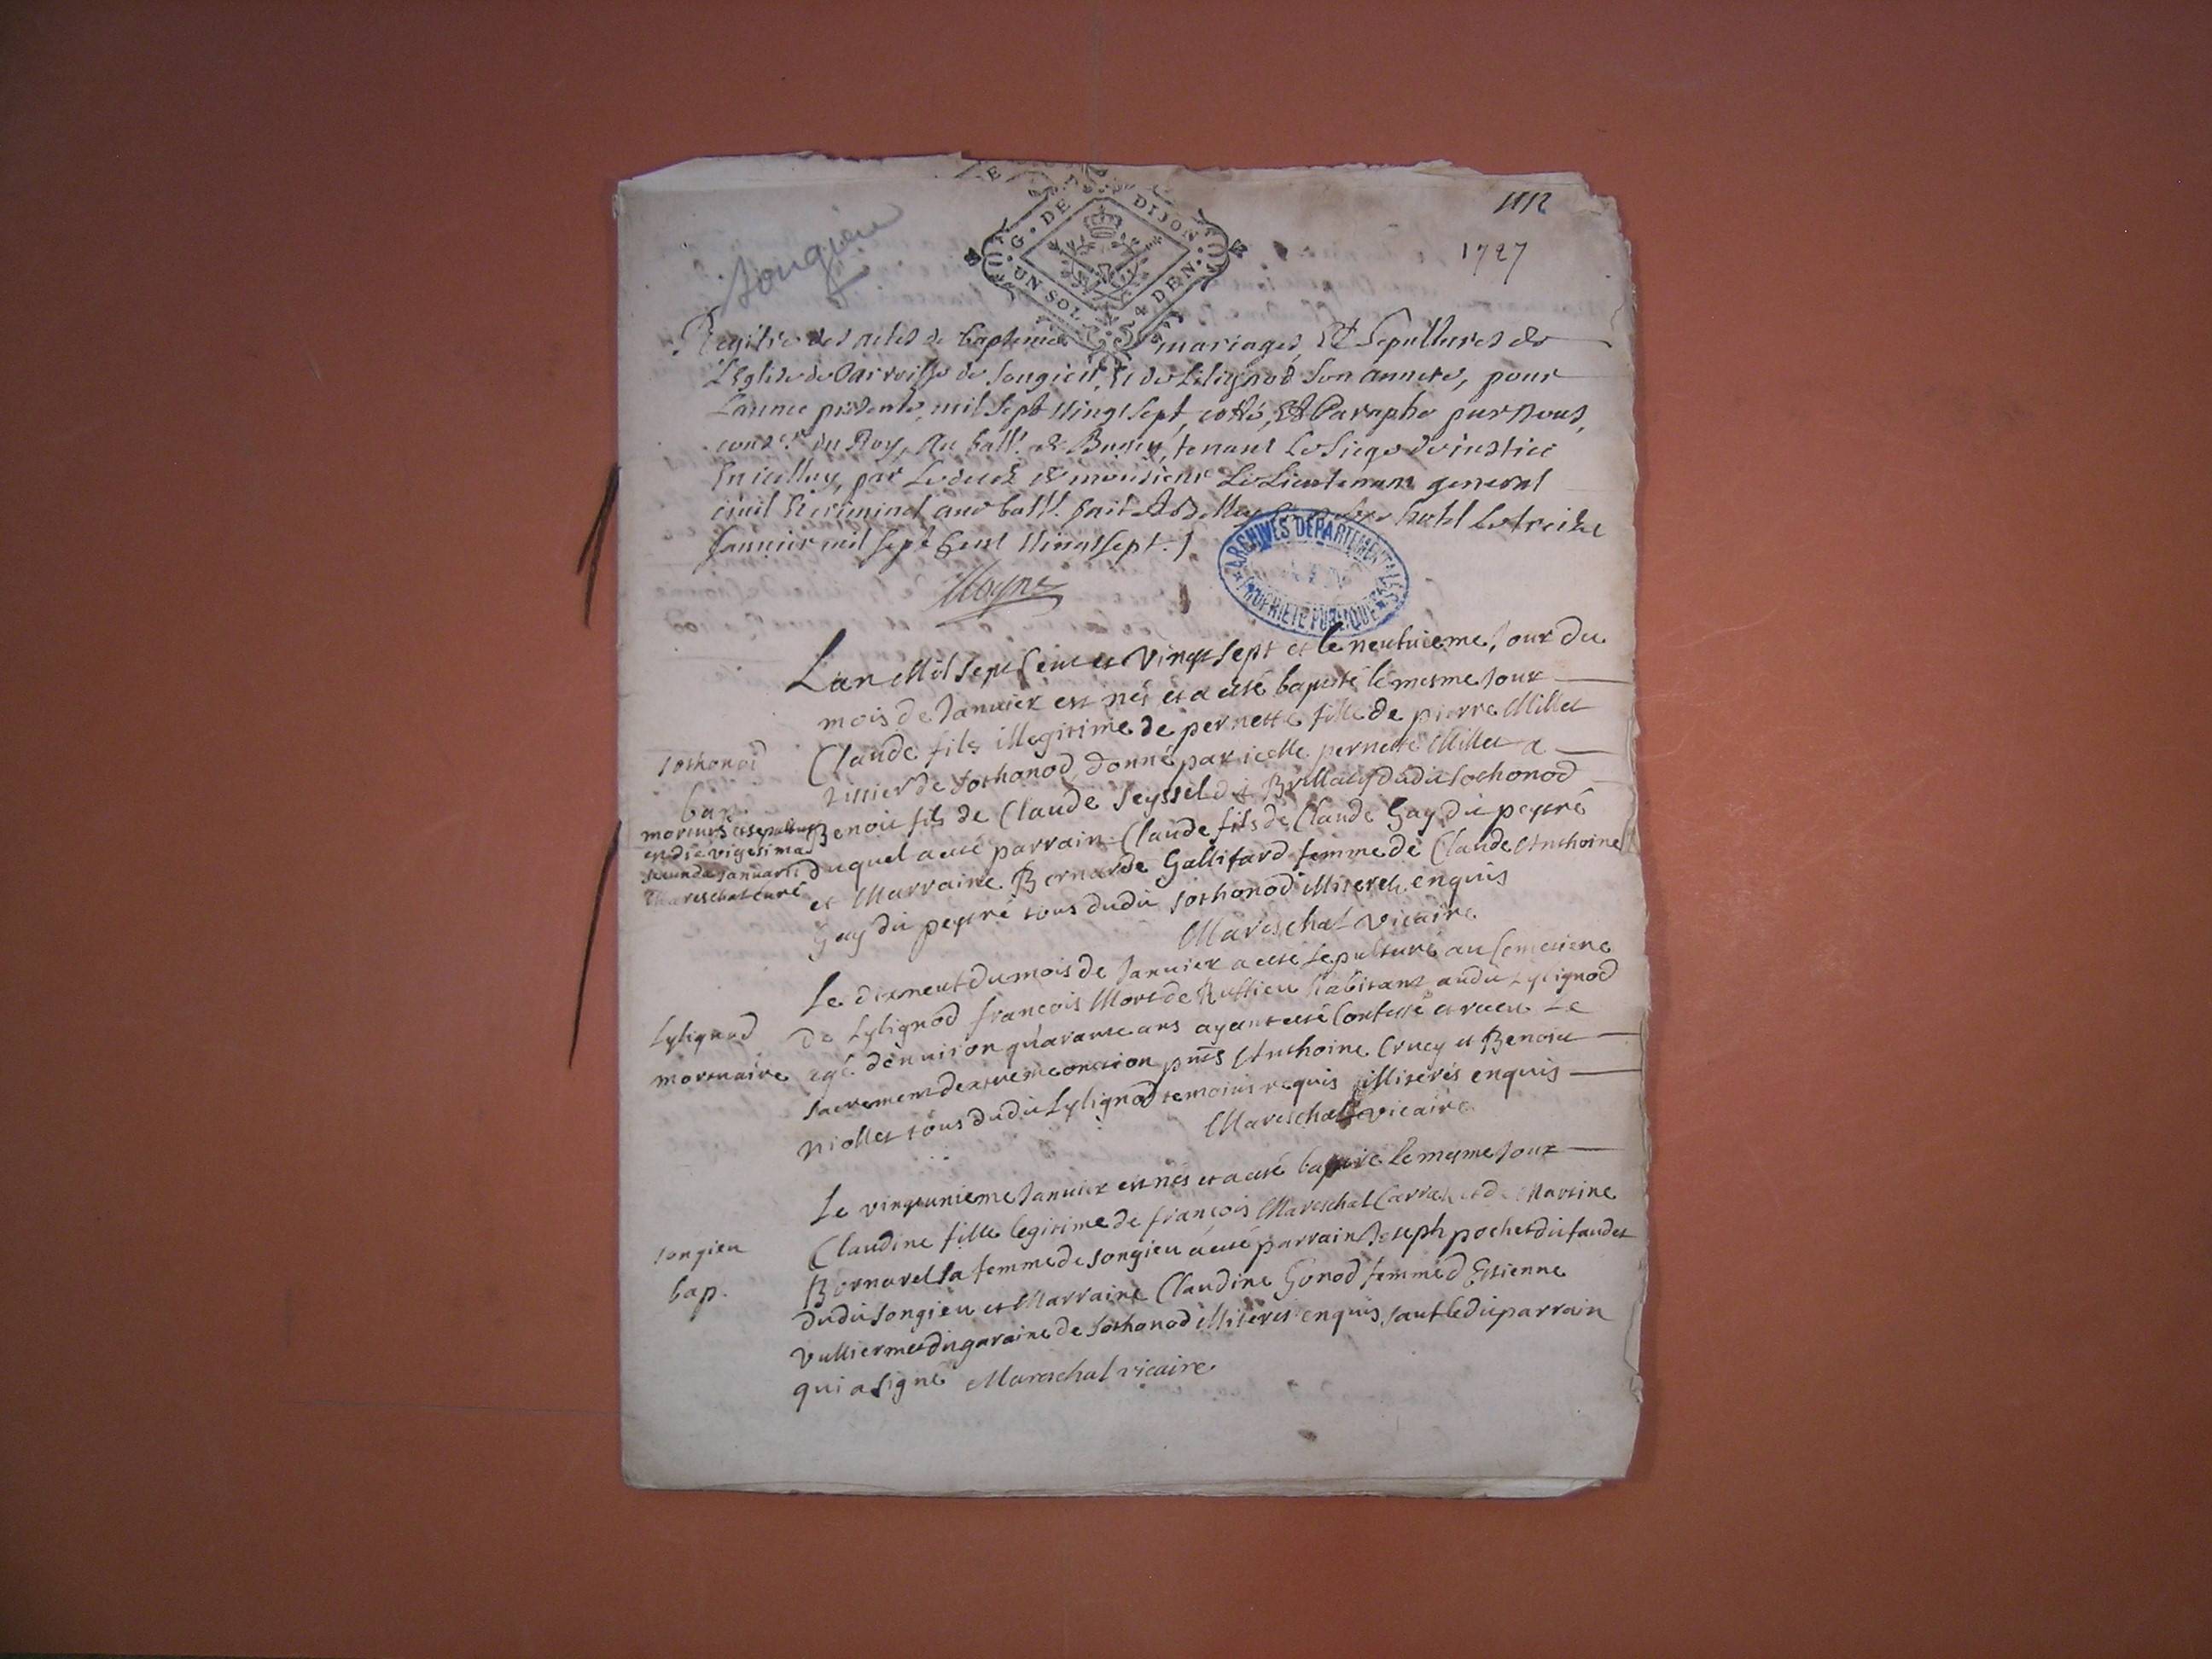 1727
Songieu
G. DE DIJON.
UN SOL 4 DEN.
Registre des actes de baptemes mariages, Et Sepultures de
L'Eglise de Parroisse de Songieu, et de Lilignod Son annexe, pour
Lannee presente, mil sept vingt sept, cotté, Et Paraphé par Nous,
cons.er du Roy, Au baill. de Bugey, tenant Le Siege de justice
En icelluy, par Le deces de monsieur Le Lieutenant general
civil Et criminel aud baill. fait A Belley hotel Le treize
Janvier mil sept Cent Vingt sept.
ARCHIVES DEPARTEMENTALES
PROPRIETE PUBLIQUE
Lan Mil sept Cent et vingt sept et le neufvieme Jour du
mois de Janvier est nés et a eté baptisé le mesme Jour
Claude fils illegitime de pernette fille de pierre Millet
tissier de Sothonod donné par icelle pernette Millet a
Benoit fils de Claude Seyssel dit dudit Sothonod
duquel a eté parrain Claude fils de Claude Gay dit peytré
et Marraine Bernarde Gallifard femme de Claude Anthoine
Gay dit peytré tous dudit Sothonod illiterés enquis
Mareschal vicaire
Sothonod
bap.
mortuus et sepultus
est die vigesima
secunda Januarii
Mareschal curé
Le dixneuf du mois de Janvier a eté sepulturé au Cemetiere
de Lylignod françois Mort de Ruffieu habitant audit Lylignod
agé denviron quarante ans ayant eté Confessé et receu Le
sacrement dextreme onction pnts Anthoine Crucy et Benoit
niollet tous dudit Lylignod temoins requis illiterés enquis
Mareschal vicaire
Lylignod
mortuaire
Le vingtunieme Janvier est nés et a eté baptisé le mesme Jour
Claudine fille legitime de françois Mareschal Carraz et de Martine
Bornarel sa femme de Songieu a eté parrain Joseph pochet dit faudet
dudit Songieu et Marraine Claudine Gonod femme d'Estienne
Vulliermet dit garaine de Sothonod illiterés enquis sauf ledit parrain
qui a signé Mareschal vicaire
Songieu
bap.